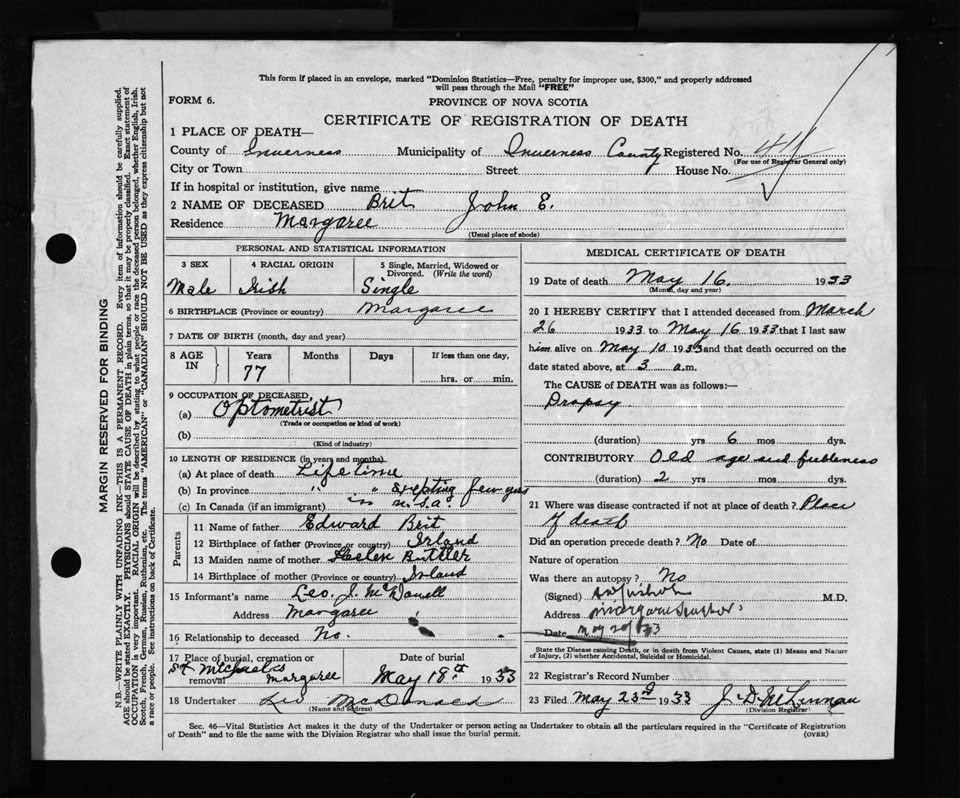 This form if placed in an envelope, marked "Dominion Statistics—Free, penalty for improper use, $300," and properly addressed
will pass through the Mail "FREE"
FORM 6.
PROVINCE OF NOVA SCOTIA
CERTIFICATE OF REGISTRATION OF DEATH
1 PLACE OF DEATH—
County of Inverness Municipality of Inverness County Registered No.
(For use of Registrar General only)
City or Town Street House No.
If in hospital or institution, give name
2 NAME OF DECEASED Brit John E.
Residence Margaree
(Usual place of abode)
PERSONAL AND STATISTICAL INFORMATION
3 SEX 4 RACIAL ORIGIN 5 Single, Married, Widowed or
Divorced. (Write the word)
Male Irish Single
6 BIRTHPLACE (Province or country) Margaree
7 DATE OF BIRTH (month, day and year)
8 AGE IN Years Months Days If less than one day,
77 hrs. or min.
9 OCCUPATION OF DECEASED,
(a) Optometrist
(Trade or occupation or kind of work)
(b)
(Kind of industry)
10 LENGTH OF RESIDENCE (in years and months)
(a) At place of death Lifetime
(b) In province " " Exepting few yrs
(c) In Canada (if an immigrant) in U.S.a.
Parents
11 Name of father Edward Brit
12 Birthplace of father (Province or country) Irland
13 Maiden name of mother Helen Buttler
14 Birthplace of mother (Province or country) Irland
15 Informant's name Leo. J. McDowell
Address Margaree
16 Relationship to deceased No.
17 Place of burial, cremation or Date of burial
St Michaels
removal Margaree May 18th 1933
18 Undertaker Leo McDonald
(Name and address)
MEDICAL CERTIFICATE OF DEATH
19 Date of death May 16. 1933
(Month, day and year)
20 I HEREBY CERTIFY that I attended deceased from March
26 1933 to May 16 1933 that I last saw
him alive on May 10 1933 and that death occurred on the
date stated above, at 3 a.m.
The CAUSE of DEATH was as follows:—
Dropsy.
(duration) yrs 6 mos dys.
CONTRIBUTORY Old age and feebleness
(duration) 2 yrs mos dys.
21 Where was disease contracted if not at place of death? Place
of death
Did an operation precede death? No Date of
Nature of operation
Was there an autopsy? No
(Signed) M.D.
Address
Date May 20/33
State the Disease causing Death, or in death from Violent Causes, state (1) Means and Nature
of Injury, (2) whether Accidental, Suicidal or Homicidal.
22 Registrar's Record Number
23 Filed May 23d 1933 J. D. McLennan
(Division Registrar)
Sec. 46—Vital Statistics Act makes it the duty of the Undertaker or person acting as Undertaker to obtain all the particulars required in the "Certificate of Registration
of Death" and to file the same with the Division Registrar who shall issue the burial permit. (OVER)
MARGIN RESERVED FOR BINDING
N.B.—WRITE PLAINLY WITH UNFADING INK—THIS IS A PERMANENT RECORD. Every item of information should be carefully supplied.
AGE should be stated EXACTLY. PHYSICIANS should STATE CAUSE OF DEATH in plain terms, so that it may be properly classified. Exact statement of
OCCUPATION is very important. RACIAL ORIGIN will be described by stating to what people or race the deceased person belonged, whether English, Irish,
Scotch, French, German, Russian, Ruthenian, etc. The terms "AMERICAN" or "CANADIAN" SHOULD NOT BE USED as they express citizenship but not
a race or people. See instructions on back of Certificate.